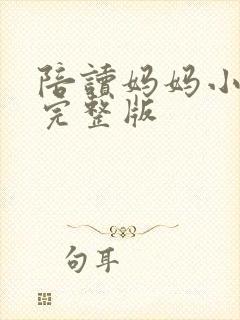 陪讀妈妈小
完整版
句耳